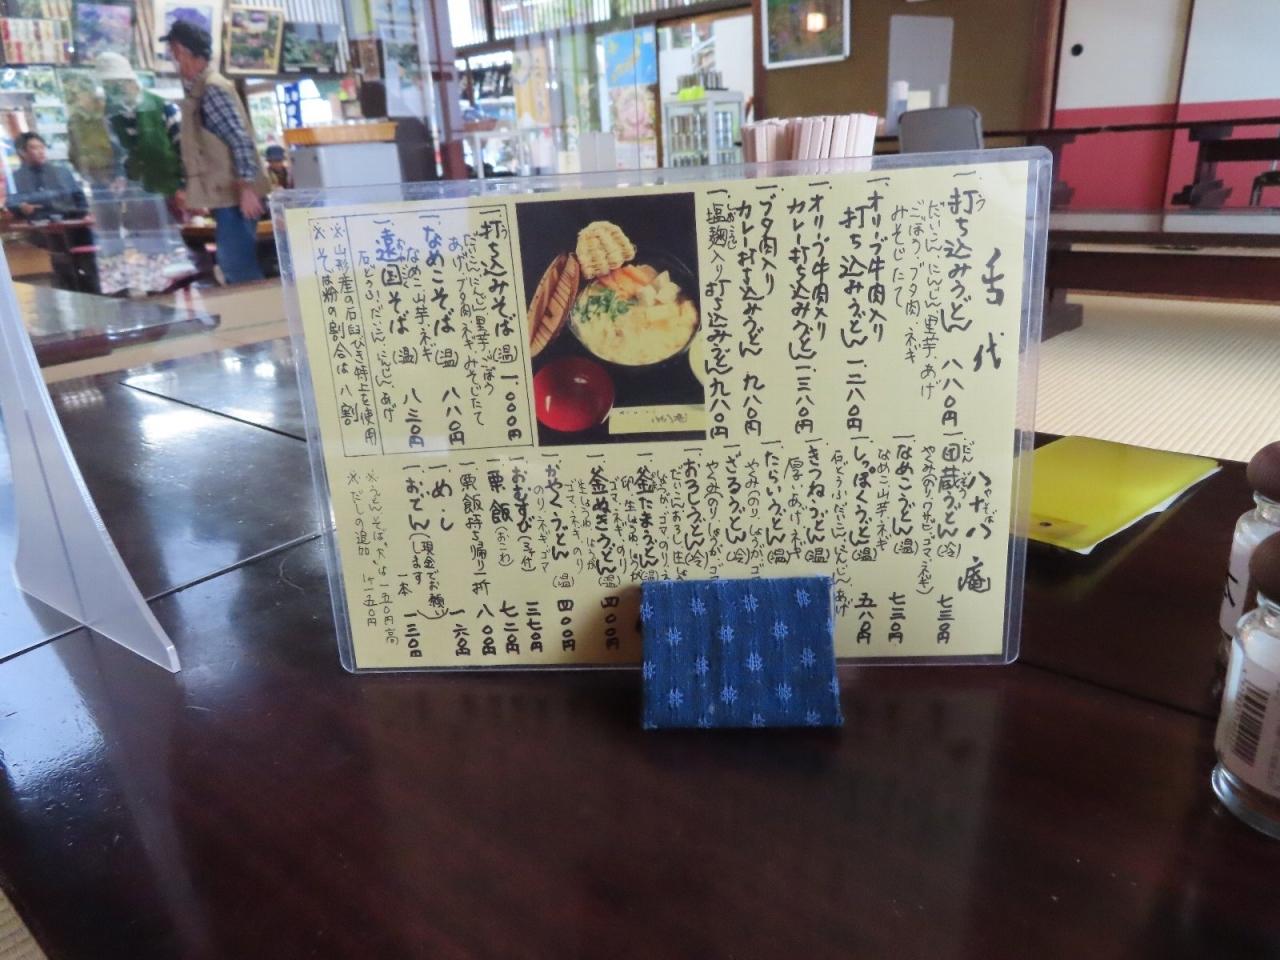 舌代
八十八庵
一、打ち込みうどん 八八〇円
だいこん、にんじん、里芋、あげ
ごぼう、ブタ肉、ネギ
みそじたて
一、オリーブ牛肉入り
打ち込みうどん 一、二八〇円
一、オリーブ牛肉入り
カレー打ち込みうどん 一、三八〇円
一、ブタ肉入り
カレー打ち込みうどん 九八〇円
一、塩麹入り打ち込みうどん 九八〇円
一、打ち込みそば(温) 一、〇〇〇円
だいこん、にんじん、里芋、ごぼう
あげ、ブタ肉、ネギ、みそじたて
一、なめこそば(温) 八八〇円
なめこ、山芋、ネギ
一、遠国そば(温) 八三〇円
石どうふ、だいこん、にんじん、あげ
※山形産の石臼びき特上を使用
※そば粉の割合は 八割
一、団蔵うどん(冷) 七三〇円
やくみ(のり、ワサビ、ゴマ、ネギ)
一、なめこうどん(温) 七三〇円
なめこ、山芋、ネギ
一、しっぽくうどん(温) 五八〇円
石どうふ、だいこん、にんじん、あげ
一、きつねうどん(温)
厚いあげ、ネギ
一、たらいうどん(温)
一、ざるうどん(冷)
一、おろしうどん(冷)
一、釜たまうどん(温)
一、釜ぬきうどん(温) 四〇〇円
一、かやくうどん(温) 四〇〇円
のり、ネギ、ゴマ
一、おむすび(3ヶ付) 三七〇円
一、栗飯(おこわ) 七二〇円
一、栗飯持ち帰り一折 八〇〇円
一、めし 一六〇円
一、おでん(現金でお願いします) 一本 一三〇円
※うどん、そば、大は一五〇円高
※だしの追加 一ヶ一五〇円